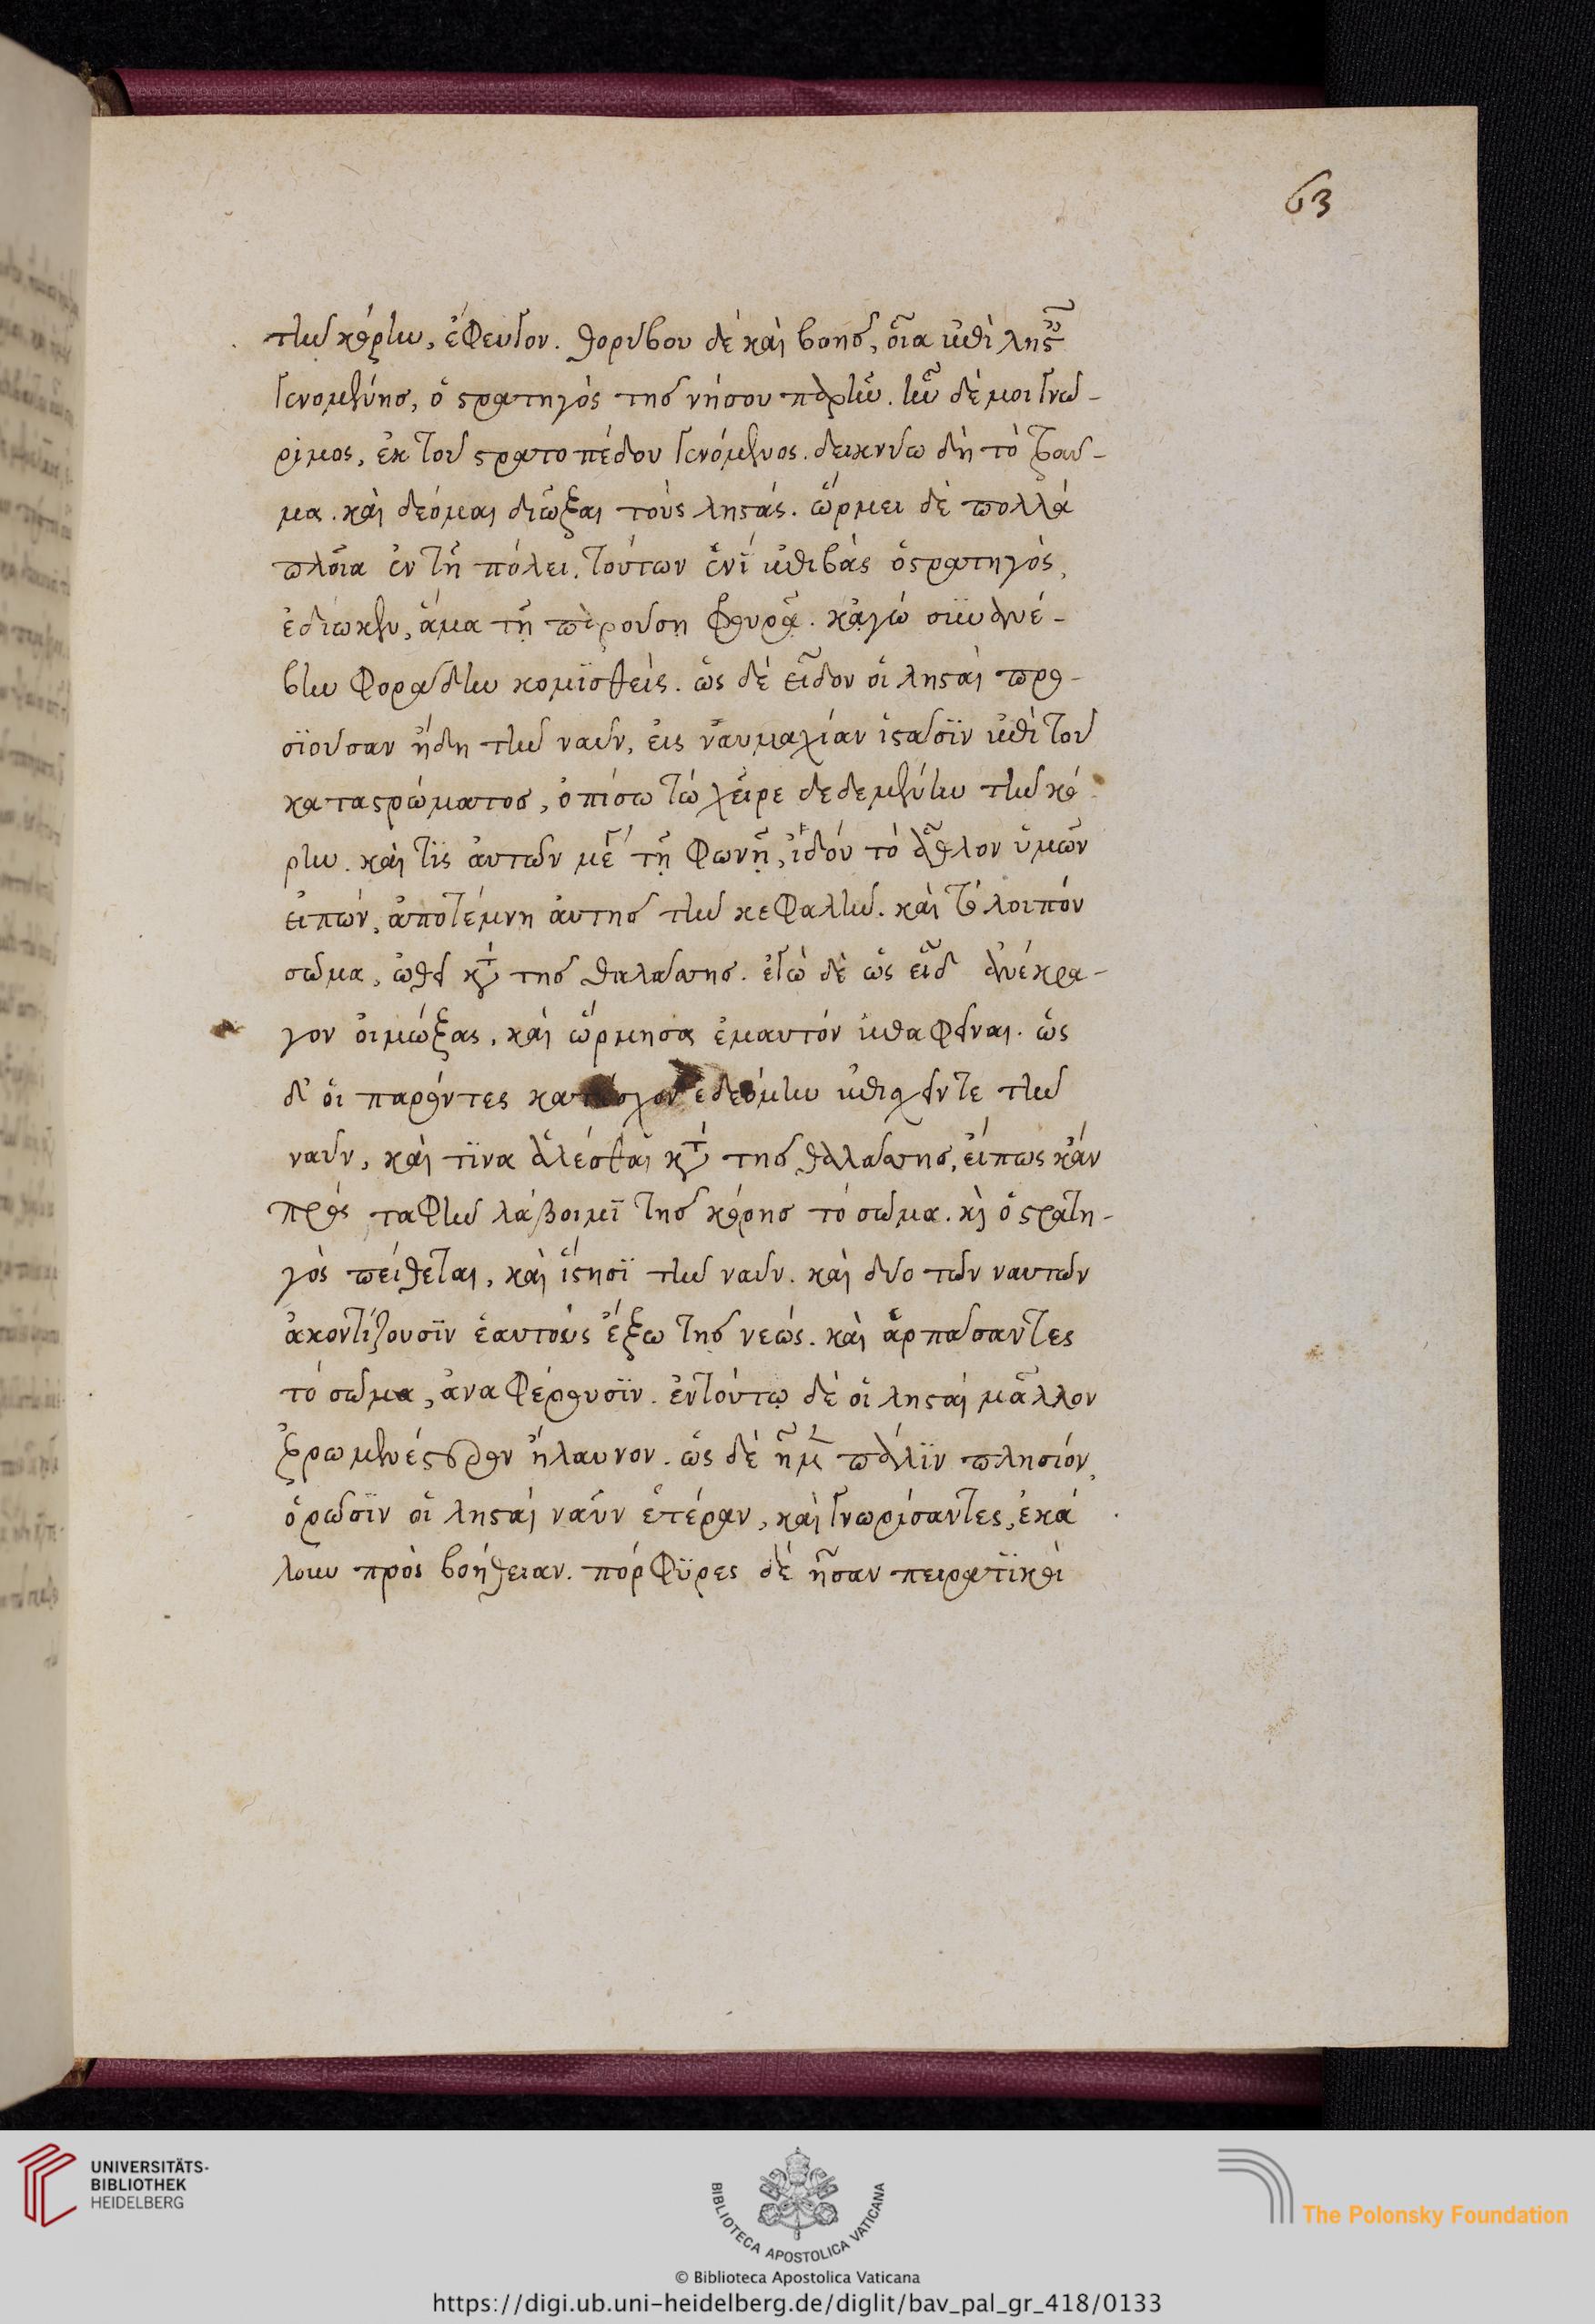 63
τὴν κόρην, ἔφευγον. θορύβου δὲ καὶ βοῆς, οἷα ἐπὶ λῃσταῖς
γενομένης, ὁ στρατηγὸς τῆς νήσου παρῆν. ἦν δέ μοι γνώ-
ριμος, ἐκ τοῦ στρατοπέδου γενόμενος. δεικνύω δὴ τὸ τραῦ-
μα. καὶ δέομαι διῶξαι τοὺς λῃστάς. ὥρμει δὲ πολλὰ
πλοῖα ἐν τῇ πόλει. τούτων ἑνὶ ἐπιβὰς ὁ στρατηγὸς,
ἐδίωκεν, ἅμα τῇ παρούσῃ φρουρᾷ. κἀγὼ συνανέ-
βην φοράδην κομισθείς. ὡς δὲ εἶδον οἱ λῃσταὶ προ-
σιοῦσαν ἤδη τὴν ναῦν, εἰς ναυμαχίαν ἱστᾶσιν ἐπὶ τοῦ
καταστρώματος, ὀπίσω τὼ χεῖρε δεδεμένην τὴν κό-
ρην. καὶ τὶς αὐτῶν μεγ τῇ φωνῇ, ἰδοὺ τὸ ἆθλον ὑμῶν
εἰπών, ἀποτέμνη αὐτῆς τὴν κεφαλήν. καὶ τὸ λοιπὸν
σῶμα, ὠθεῖ κατὰ τῆς θαλάσσης. ἐγὼ δὲ ὡς εἶδ ἀνέκρα-
γον οἰμώξας, καὶ ὥρμησα ἐμαυτὸν ἐπαφεῖναι. ὡς
δ' οἱ παρόντες κατέσχον ἐδεόμην ἐπισχεῖν τε τὴν
ναῦν, καί τινα ἁλέσθαι κατὰ τῆς θαλάσσης, εἴπως κἂν
πρὸς ταφὴν λάβοιμι τῆς κόρης τὸ σῶμα. καὶ ὁ στρατη-
γὸς πείθεται, καὶ ἵστησι τὴν ναῦν. καὶ δύο τῶν ναυτῶν
ἀκοντίζουσιν ἑαυτοὺς ἔξω τῆς νεώς. καὶ ἁρπάσαντες
τὸ σῶμα, ἀναφέρουσιν. ἐν τούτῳ δὲ οἱ λῃσταὶ μᾶλλον
ἐρρωμενέστερον ἤλαυνον. ὡς δὲ ἦμεν πάλιν πλησίον,
ὁρῶσιν οἱ λῃσταὶ ναῦν ἑτέραν, καὶ γνωρίσαντες, ἐκά
λουν πρὸς βοήθειαν. πορφύρες δὲ ἦσαν πειρατικοὶ
UNIVERSITÄTS-
BIBLIOTHEK
HEIDELBERG
BIBLIOTECA APOSTOLICA VATICANA
© Biblioteca Apostolica Vaticana
The Polonsky Foundation
https://digi.ub.uni-heidelberg.de/diglit/bav_pal_gr_418/0133